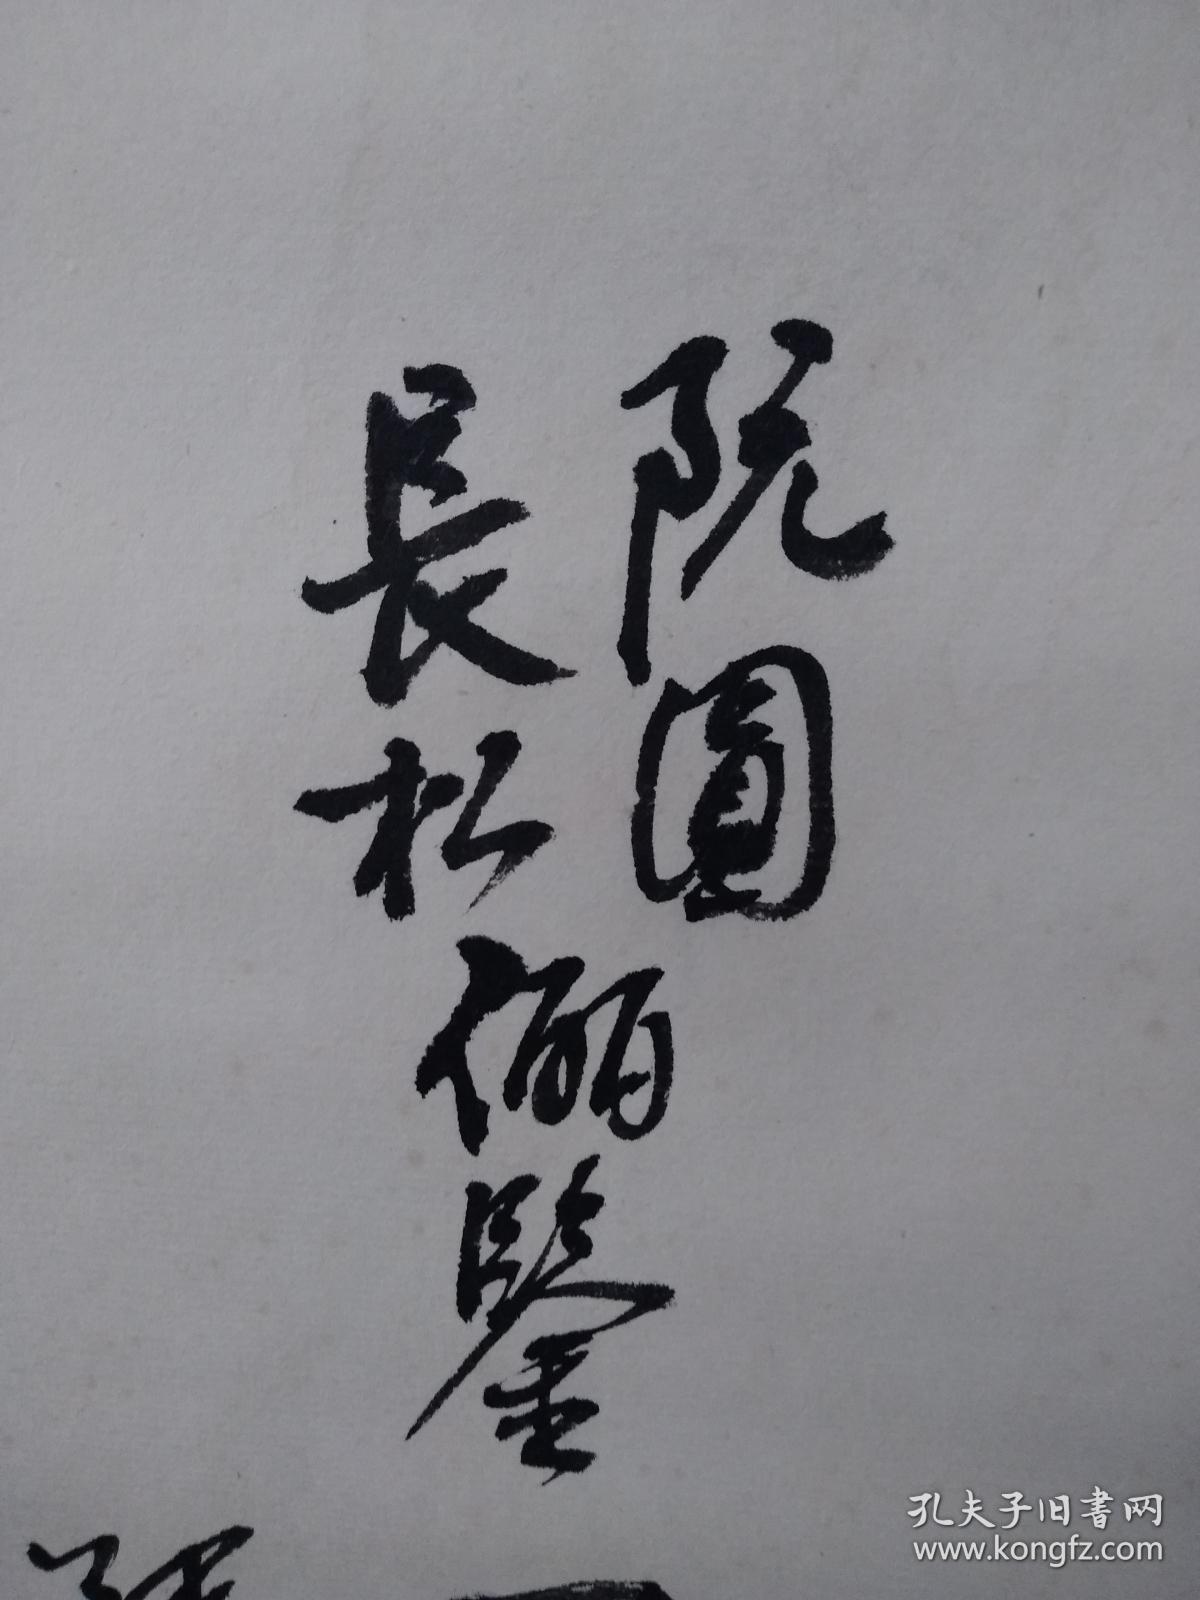 阮圓
長松
儷鑒
孔夫子旧書网
www.kongfz.com